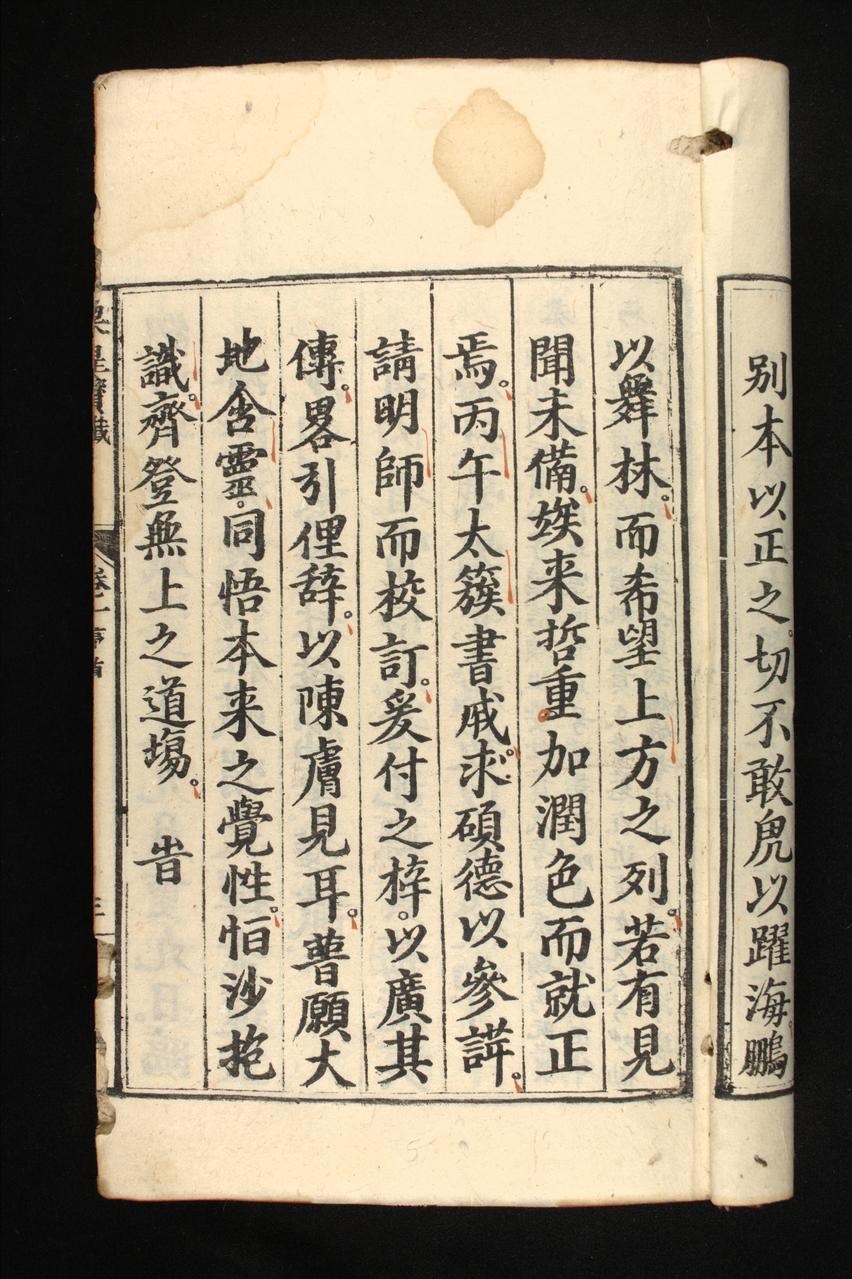 别本以正之。切不敢鳬以躍海。鵬
以舞林。而希望上方之列。若有見
聞未備。娭来哲重加潤色而就正
焉。丙午太簇書戚。求碩德以參評。
請明師而校訂。爰付之梓。以廣其
傳。畧引俚辞。以陳膚見耳。普願大
地含靈。同悟本来之覺性。怕沙抱
識。齊登無上之道塲。 旹